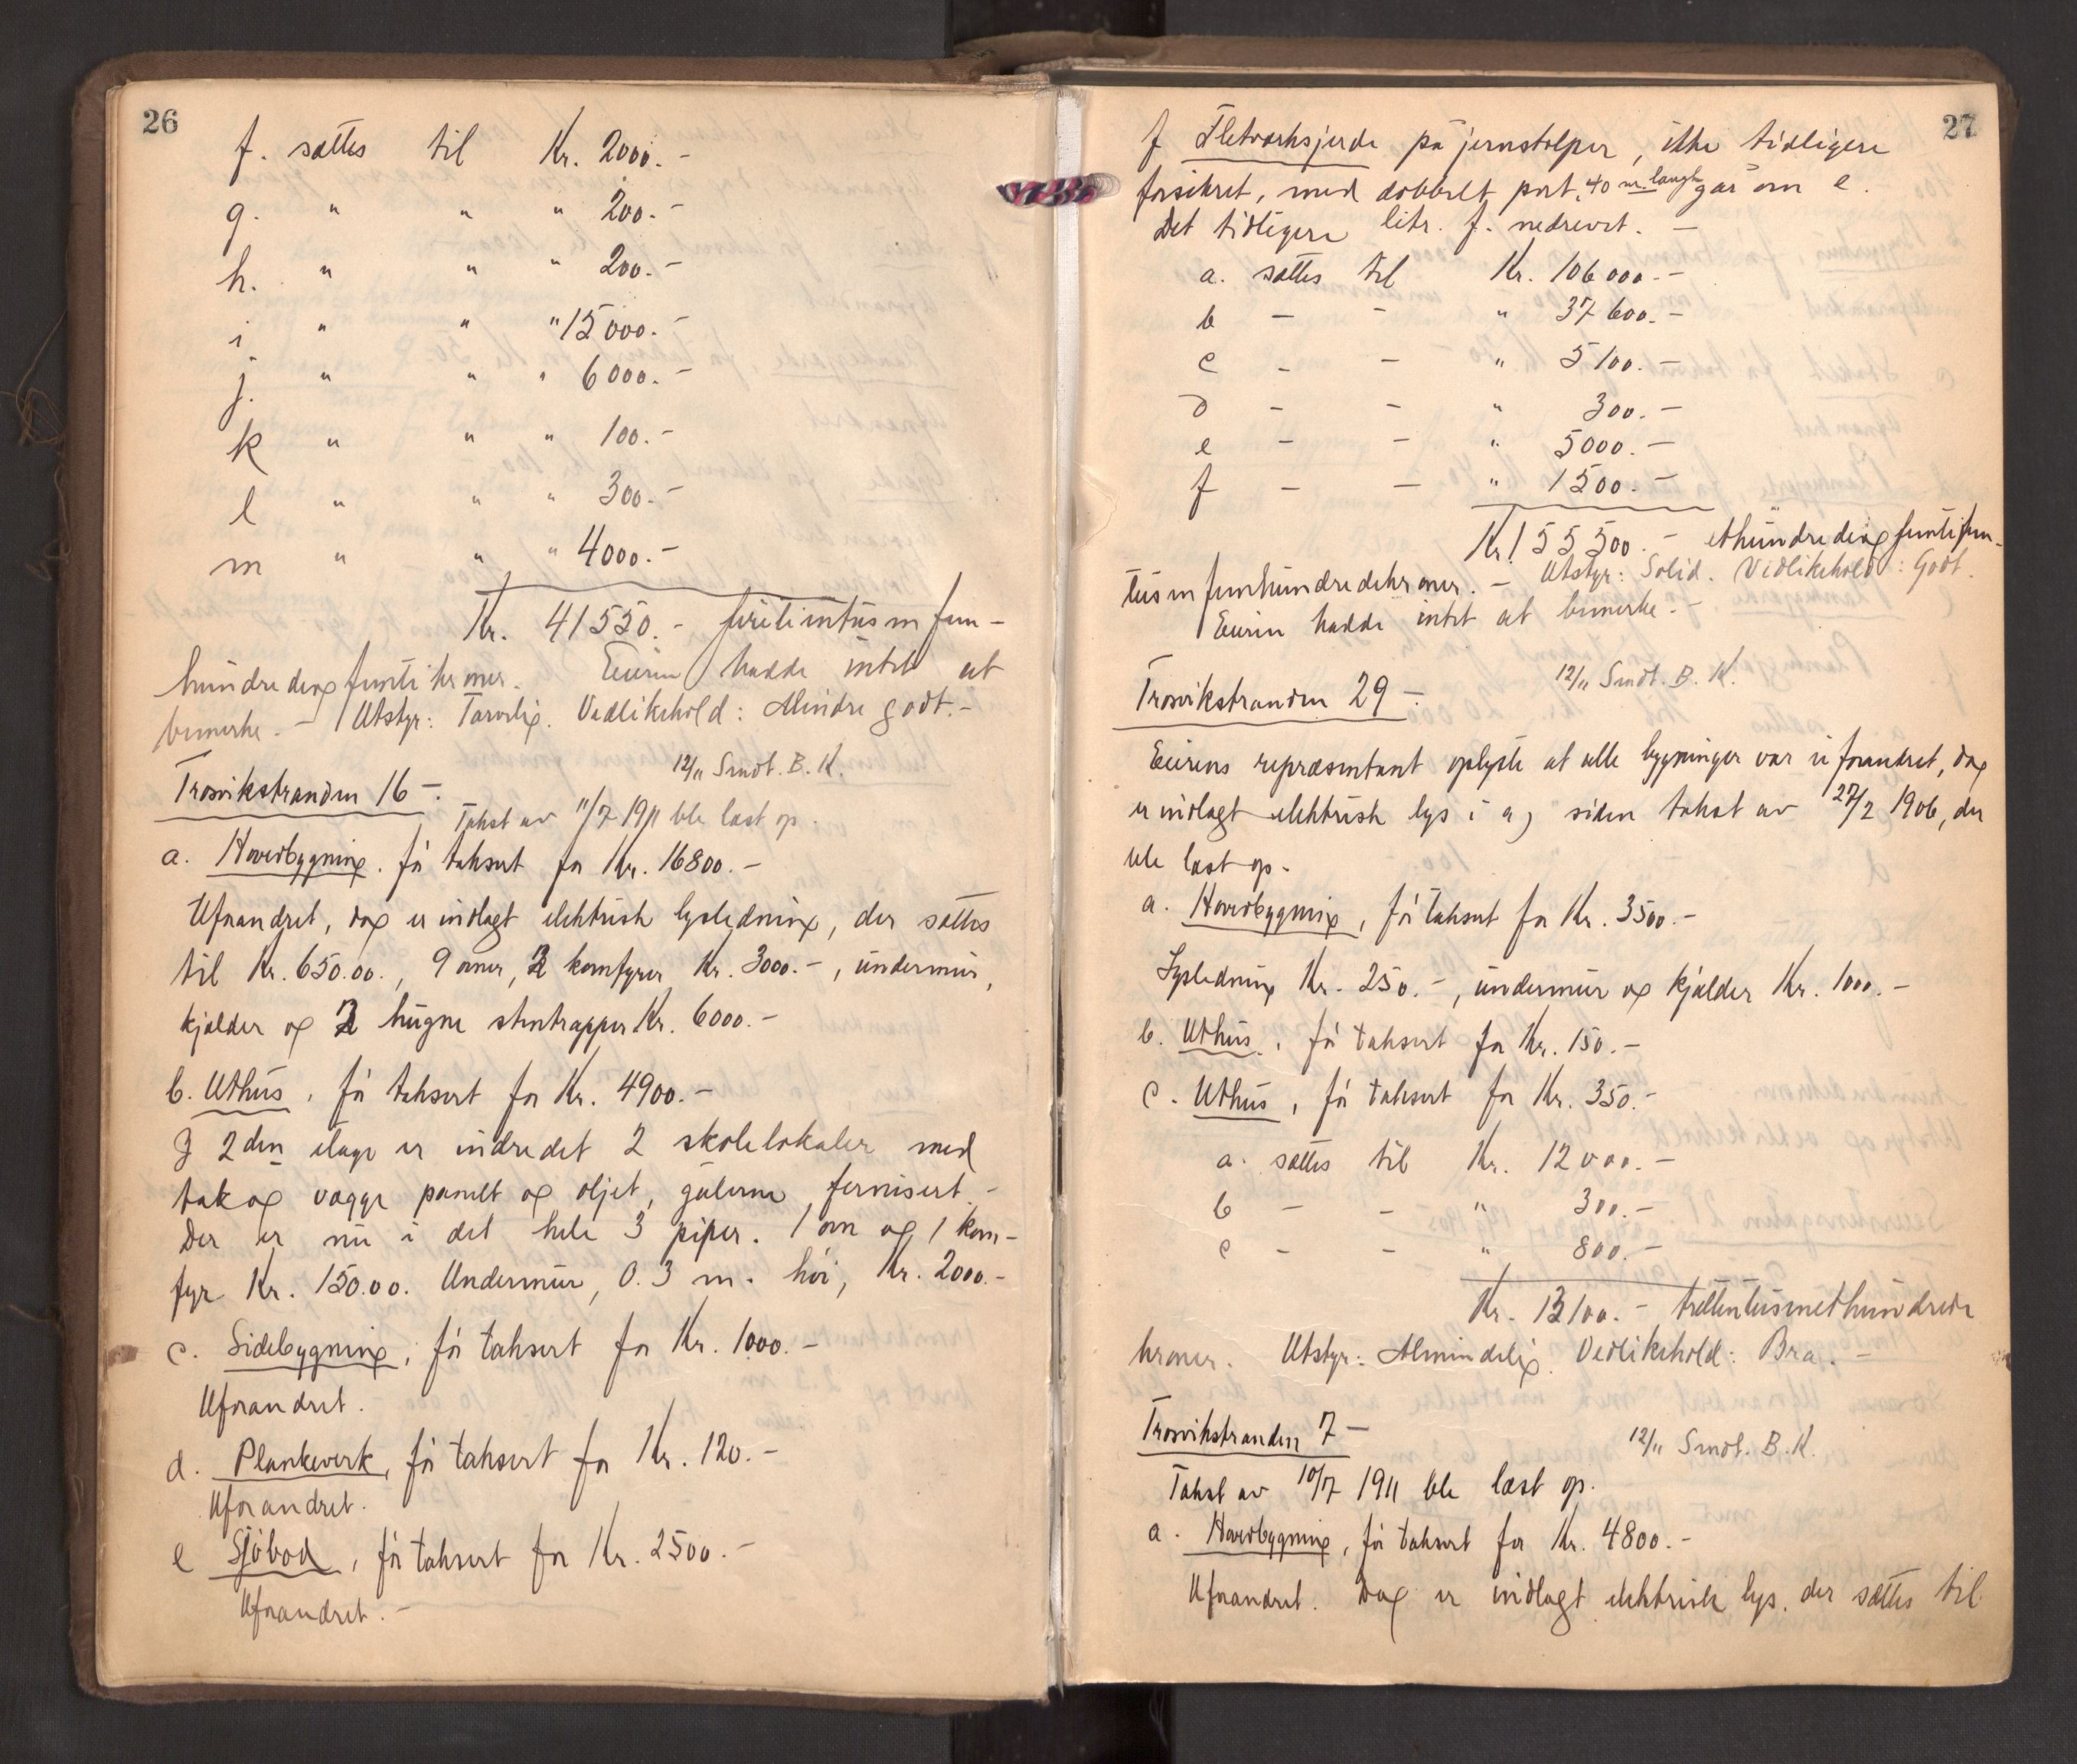 26
f. sættes til Kr. 2000.-
g. " " " 200.-
h. " " " 200.-
i " " " 15000.-
j. " " " 6000.-
k " " " 100.-
l " " " 300.-
m " " " 4000.-
Kr. 41550.- firetientusen fem-
hundredeogfemti kroner. Eieren hadde intet at
bemerke. - Utstyr: Tarvelig. Vedlikehold: Mindre godt.-
Trosvikstranden 16 -. 12/11 Sendt. B. K.
Takst av 11/7 1911 ble læst op.
a. Hovedbygning. før taksert for Kr. 16800.-
Uforandret, dog er indlagt elektrisk lysledning, der sættes
til Kr. 650.00., 9 ovner, 2 komfyrer Kr. 3000.-, undermur,
kjelder og 2 hugne stentrapper Kr. 6000.-
b. Uthus, før taksert for Kr. 4900.-
I 2den etage er indredet 2 skolelokaler med
tak og vægge panelt og oljet, gulvene fernisert.-
Der er nu i det hele 3 piper. 1 ovn og 1 kom-
fyr Kr. 150.00. Undermur, 0.3 m. høi, Kr. 2000.-
c. Sidebygning, før taksert for Kr. 1000.-
Uforandret.
d. Plankeverk, før taksert for Kr. 120.-
Uforandret.
e Sjøbod, før taksert for Kr. 2500.-
Uforandret.-
27
f Fletverksjerde på jernstolper, ikke tidligere
forsikret, med dobbelt port, 40 m. langt går om e.
Det tidligere litr. f. nedrevet. -
a. sættes til Kr. 106000.-
b - - " 37600.-
c - - " 5100.-
d - - " 300.-
e - - " 5000.-
f - - " 1500.-
Kr. 155500.- ethundredeogfemtifem-
tusenfemhundredekroner. - Utstyr: Solid. Vedlikehold: Godt.
Eieren hadde intet at bemerke.-
Trosvikstranden 29 -. 12/11 Sendt. B. K.
Eierens repræsentant oplyste at alle bygninger var uforandret, dog
er indlagt elektrisk lys i a) siden takst av 27/2 1906, der
ble læst op.
a. Hovedbygning, før taksert for Kr. 3500.-
Lysledning Kr. 250.-, undermur og kjælder Kr. 1000.-
b. Uthus, før taksert for Kr. 150.-
c. Uthus, før taksert for Kr. 350.-
a. sættes til Kr. 12000.-
b - - " 300.-
c - - " 800.-
Kr. 13100.- trettentusenethundrede
kroner. Utstyr: Almindelig. Vedlikehold: Bra. -
Trosvikstranden 7 - 12/11 Sendt. B. K.
Takst av 10/7 1911 ble læst op.
a. Hovedbygning, før taksert for Kr. 4800.-
Uforandret. Dog er indlagt elektrisk lys, der sættes til